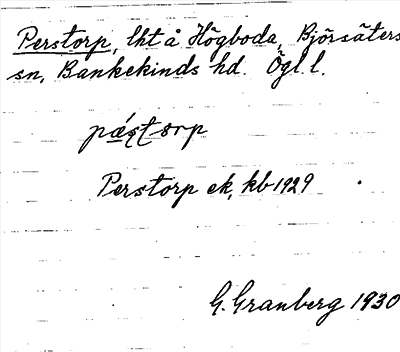 Perstorp, lht å Högboda, Björsäters
sn, Bankekinds hd. Ögl. l.
pǽştorp
Perstorp ek, kb 1929
G. Granberg 1930